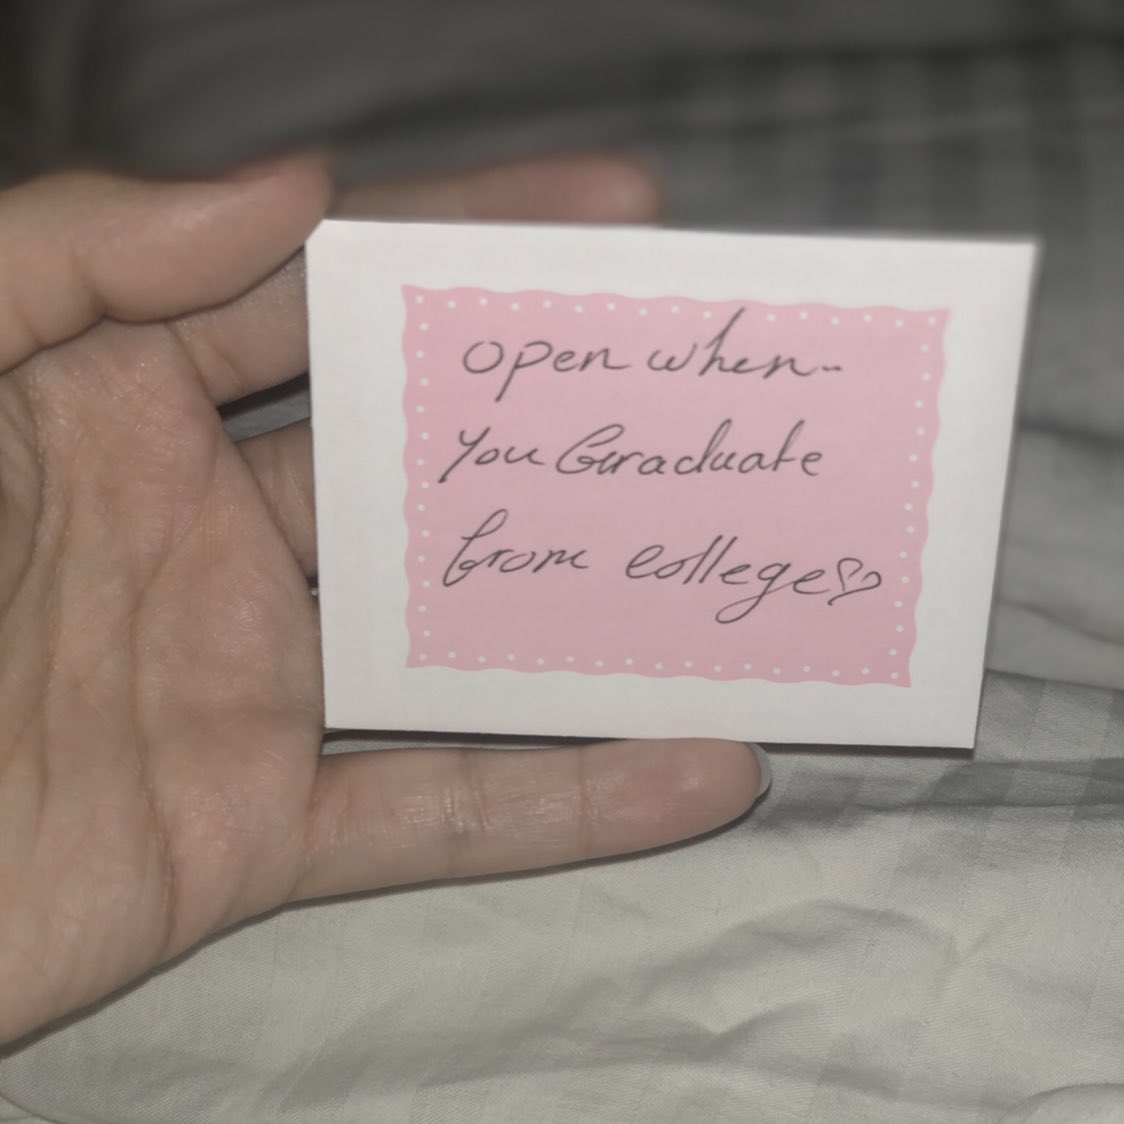 open when..
You Graduate
from college♡